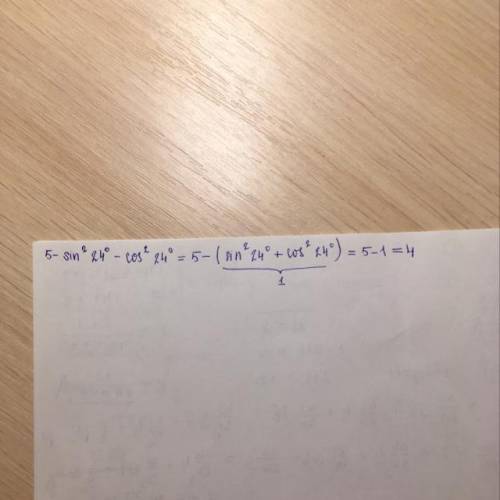 5 - sin² 24° - cos² 24° = 5 - (sin² 24° + cos² 24°) = 5 - 1 = 4
1